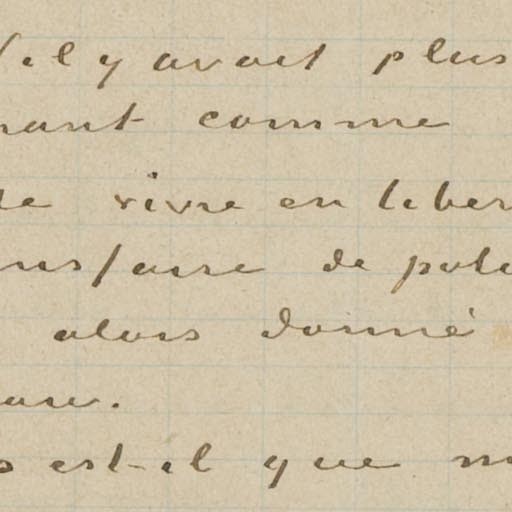 s'il y avait plus
nant comme
de vivre en liber
ns faire de pol
alors donné
est-il que